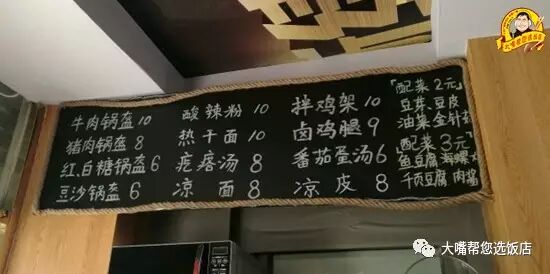 大嘴帮您选饭店
牛肉锅盔 10
猪肉锅盔 8
红、白糖锅盔 6
豆沙锅盔 6
酸辣粉 10
热干面 10
疙瘩汤 8
凉面 8
拌鸡架 10
卤鸡腿 9
番茄蛋汤 6
凉皮 8
配菜2元
豆芽 豆皮
油菜 金针
配菜3元
鱼豆腐 海螺
千页豆腐 肉酱
大嘴帮您选饭店